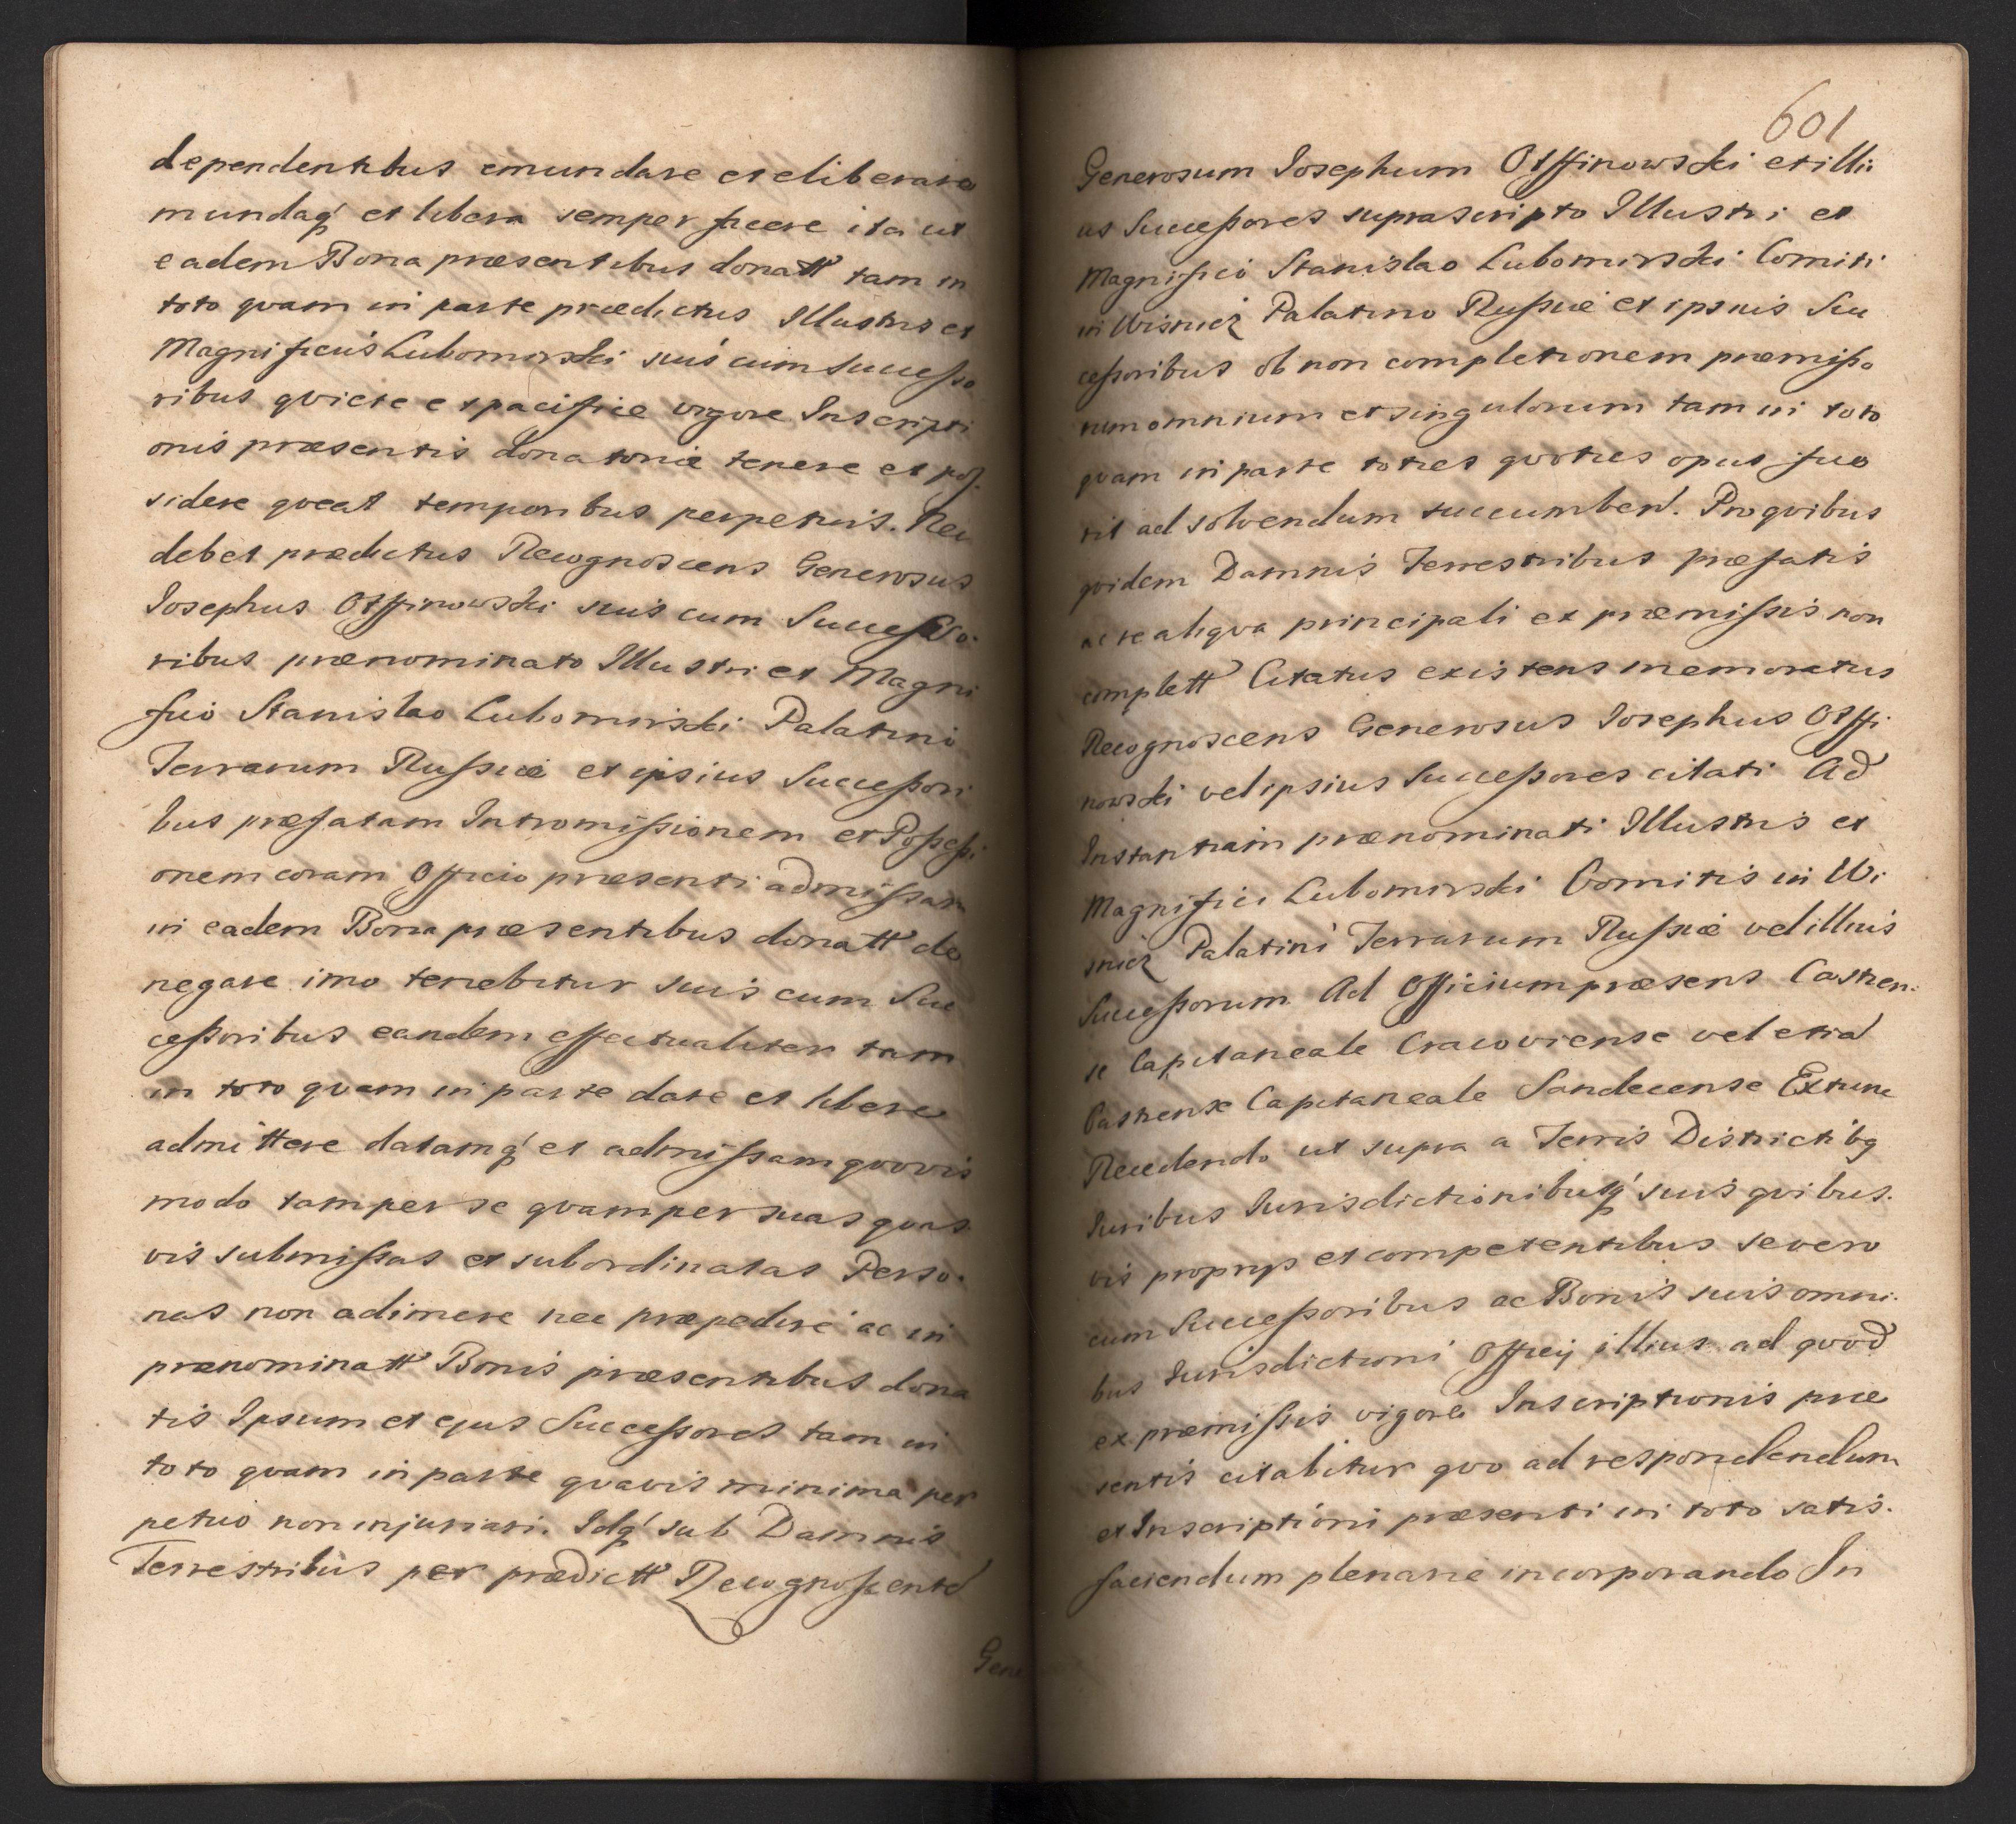 dependentibus emundare et eliberare
mundaq' et libera semper facere ita ut
eadem Bona præsentibus donatt tam in
toto qvam in parte prædictus Illustris et
Magnificus Lubomirski suis cum Successo
ribus qviete et pacifice vigore Inscripti
onis præsentis donatoriæ tenere et pos
sidere qveat temporibus perpetuis. Nec
debet prædictus Recognoscens Generosus
Josephus Ossinowski suis cum Successo-
ribus prænominato Illustri et Magni
fico Stanislao Lubomirski Palatino
Terrarum Russiæ et ipsius Successori
bus præfatam Intromissionem et Possessi
onem coram Officio præsenti admissam
in eadem Bona præsentibus donatt de
negare imo tenebitur suis cum Suc
cessoribus eandem effectualiter tam
in toto qvam in parte dare et libere
admittere datamq' et admissam qvovis
modo tam per se qvam per suas qvas
vis submissas et subordinatas Perso-
nas non adimere nec præpedire ac in
prænominatt Bonis præsentibus dona
tis Ipsum et ejus Successores tam in
toto qvam in parte qvavis minima per
petuo non injuriari. Idq' sub Damnis
Terrestribus per prædictt Recognoscente
Gene
601
Generosum Josephum Ossinowski et illi-
us Successores suprascripto Illustri et
Magnifico Stanislao Lubomirski Comiti
in Wisnicz Palatino Russiæ et ipsius Suc
cessoribus ob non completionem præmisso
rum omnium et singulorum tam in toto
qvam in parte toties qvoties opus fue
rit ad solvendum succumben'. Pro qvibus
qvidem Damnis Terrestribus præfatis
ac re aliqva principali ex præmissis non
complett Citatus existens memoratus
Recognoscens Generosus Josephus Ossi-
nowski vel ipsius Successores citati Ad
Instantiam prænominati Illustris et
Magnifici Lubomirski Comitis in Wi
snicz Palatini Terrarum Russiæ vel illius
Successorum Ad Officium præsens Castren-
se Capitaneale Cracoviense vel etia'
Castrense Capitaneale Sandecense Extunc
Recedendo ut supra a Terris Districtibq
Juribus Jurisdictionibusq' suis qvibus-
vis propriis et competentibus se vero
cum Successoribus ac Bonis suis omni-
bus Jurisdictioni Officij illius ad qvod
ex præmissis vigore Inscriptionis præ
sentis citabitur qvo ad respondendum
et Inscriptioni præsenti in toto satis-
faciendum plenarie incorporando In